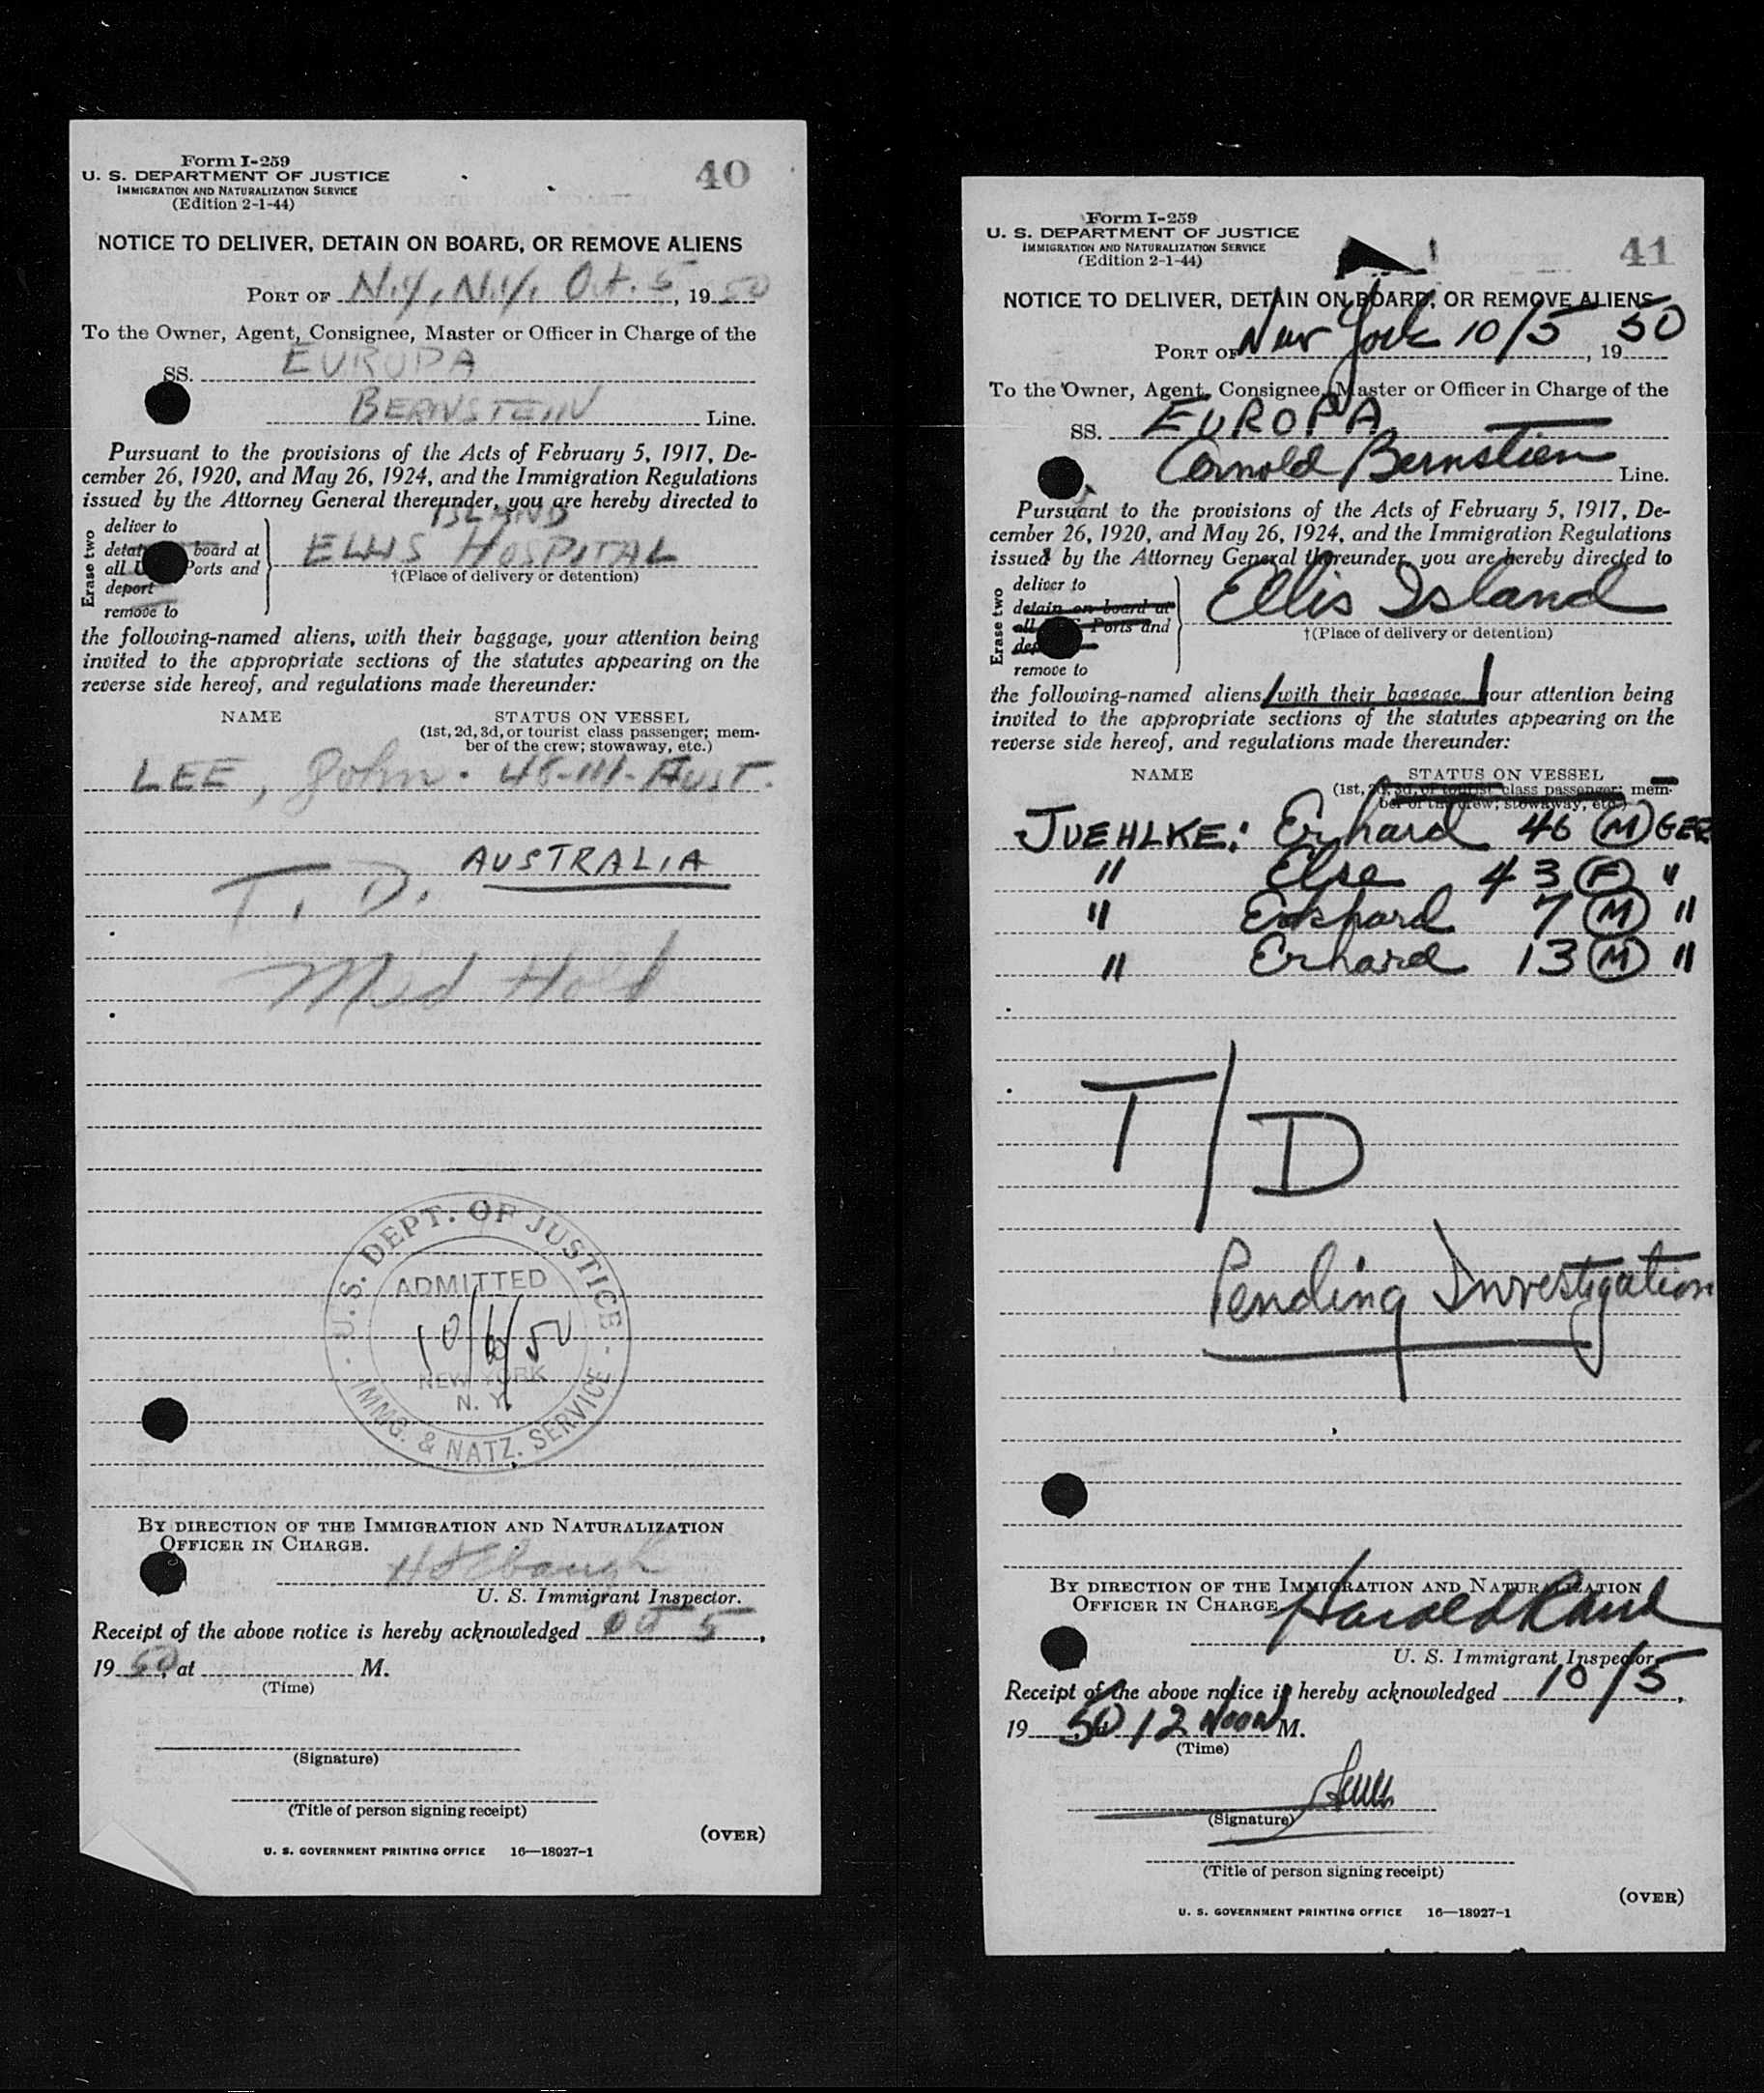 Form I-259
U. S. DEPARTMENT OF JUSTICE
IMMIGRATION AND NATURALIZATION SERVICE
(Edition 2-1-44)
40
NOTICE TO DELIVER, DETAIN ON BOARD, OR REMOVE ALIENS
PORT OF N.Y., N.Y. Oct. 5, 1950
To the Owner, Agent, Consignee, Master or Officer in Charge of the
SS. EUROPA
BERNSTEIN Line.
Pursuant to the provisions of the Acts of February 5, 1917, De-
cember 26, 1920, and May 26, 1924, and the Immigration Regulations
issued by the Attorney General thereunder, you are hereby directed to
Erase two
deliver to
board at
all Ports and
deport
remove to
ISLAND
ELLIS HOSPITAL
†(Place of delivery or detention)
the following-named aliens, with their baggage, your attention being
invited to the appropriate sections of the statutes appearing on the
reverse side hereof, and regulations made thereunder:
NAME STATUS ON VESSEL
(1st, 2d, 3d, or tourist class passenger; mem-
ber of the crew; stowaway, etc.)
LEE, John. Aust.
AUSTRALIA
T. D.
Med Hold
U.S. DEPT. OF JUSTICE
ADMITTED
10/6/50
NEW YORK
N. Y.
IMMG. & NATZ. SERVICE
BY DIRECTION OF THE IMMIGRATION AND NATURALIZATION
OFFICER IN CHARGE.
U. S. Immigrant Inspector.
Receipt of the above notice is hereby acknowledged Oct 5,
1950, at M.
(Time)
(Signature)
(Title of person signing receipt)
(OVER)
U. S. GOVERNMENT PRINTING OFFICE 16—18927-1
Form I-259
U. S. DEPARTMENT OF JUSTICE
IMMIGRATION AND NATURALIZATION SERVICE
(Edition 2-1-44)
41
NOTICE TO DELIVER, DETAIN ON BOARD, OR REMOVE ALIENS
PORT OF New York 10/5, 1950
To the Owner, Agent, Consignee, Master or Officer in Charge of the
SS. EUROPA
Arnold Bernstien Line.
Pursuant to the provisions of the Acts of February 5, 1917, De-
cember 26, 1920, and May 26, 1924, and the Immigration Regulations
issued by the Attorney General thereunder, you are hereby directed to
Erase two
deliver to
detain on board at
all Ports and
remove to
Ellis Island
†(Place of delivery or detention)
the following-named aliens, with their baggage, your attention being
invited to the appropriate sections of the statutes appearing on the
reverse side hereof, and regulations made thereunder:
NAME STATUS ON VESSEL
(1st, 2d, 3d, or tourist class passenger; mem-
ber of the crew; stowaway, etc.)
JUEHLKE: Erhard 46 M GER
" Else 43 F "
" Eckhard 7 M "
" Erhard 13 M "
T/D
Pending Investigation
BY DIRECTION OF THE IMMIGRATION AND NATURALIZATION
OFFICER IN CHARGE.
Harold
U. S. Immigrant Inspector.
Receipt of the above notice is hereby acknowledged 10/5,
1950 12 Noon M.
(Time)
(Signature)
(Title of person signing receipt)
(OVER)
U. S. GOVERNMENT PRINTING OFFICE 16—18927-1